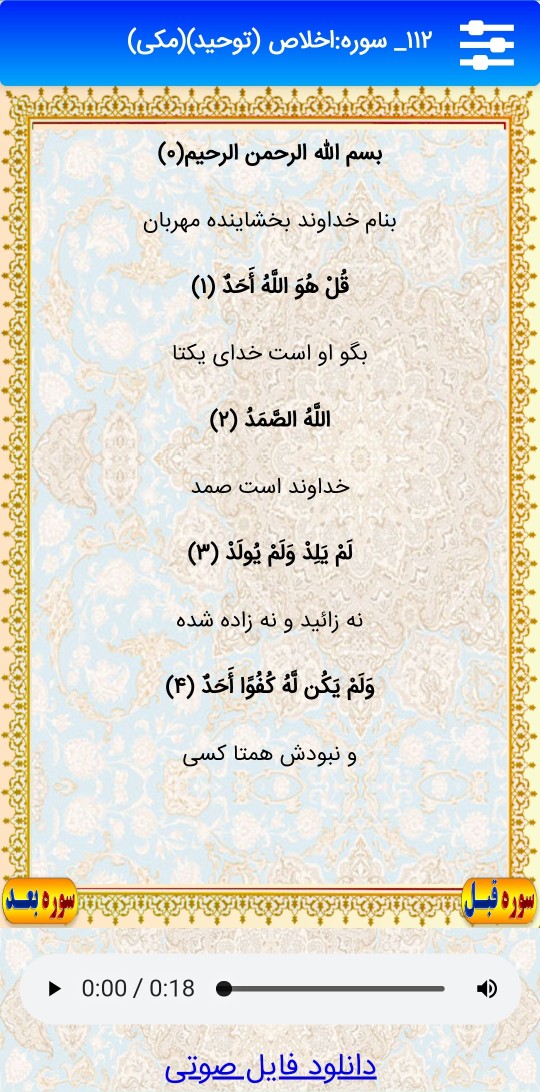 ۱۱۲_ سوره:اخلاص (توحید)(مکی)
بسم الله الرحمن الرحیم(۰)
بنام خداوند بخشاینده مهربان
قُلْ هُوَ اللَّهُ أَحَدٌ (۱)
بگو او است خدای یکتا
اللَّهُ الصَّمَدُ (۲)
خداوند است صمد
لَمْ يَلِدْ وَلَمْ يُولَدْ (۳)
نه زائید و نه زاده شده
وَلَمْ يَكُن لَّهُ كُفُوًا أَحَدٌ (۴)
و نبودش همتا کسی
سوره قبل
سوره بعد
0:00 / 0:18
دانلود فایل صوتی